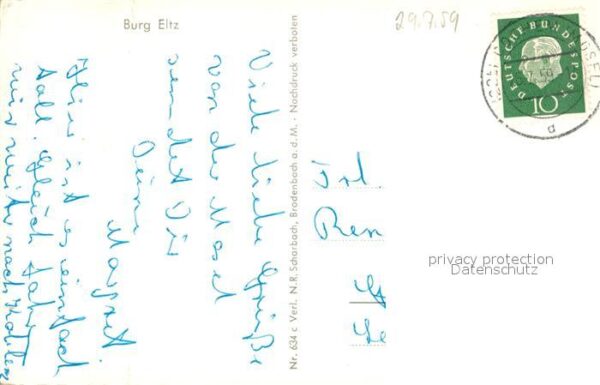 Burg Eltz
29.7.59
DEUTSCHE BUNDESPOST
10
(MOSEL)
(22b)
a
Viele liebe Grüße
von der Mosel
sendet Dir
Deine
Margret.
Hier ist es einfach
toll. Gleich fahren
wir weiter nach Koblenz
Nr. 634 c Verl. N.R. Scharbach, Brodenbach a.d.M. - Nachdruck verboten
Frl.
Ren
privacy protection
Datenschutz